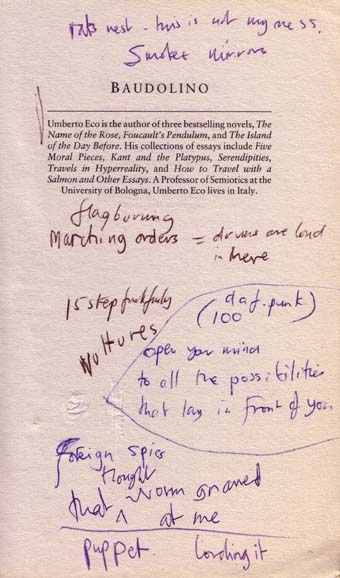 rats nest - this is not my mess.
Smoke mirrors
BAUDOLINO
Umberto Eco is the author of three bestselling novels, The
Name of the Rose, Foucault's Pendulum, and The Island
of the Day Before. His collections of essays include Five
Moral Pieces, Kant and the Platypus, Serendipities,
Travels in Hyperreality, and How to Travel with a
Salmon and Other Essays. A Professor of Semiotics at the
University of Bologna, Umberto Eco lives in Italy.
flagburning
Marching orders = drums are loud
in here
15 step
(daf.punk)
100
Vultures
open your mind
to all the possibilities
that lay in front of you
foreign spies
thought
that worm gnawed
at me
puppet. Lording it